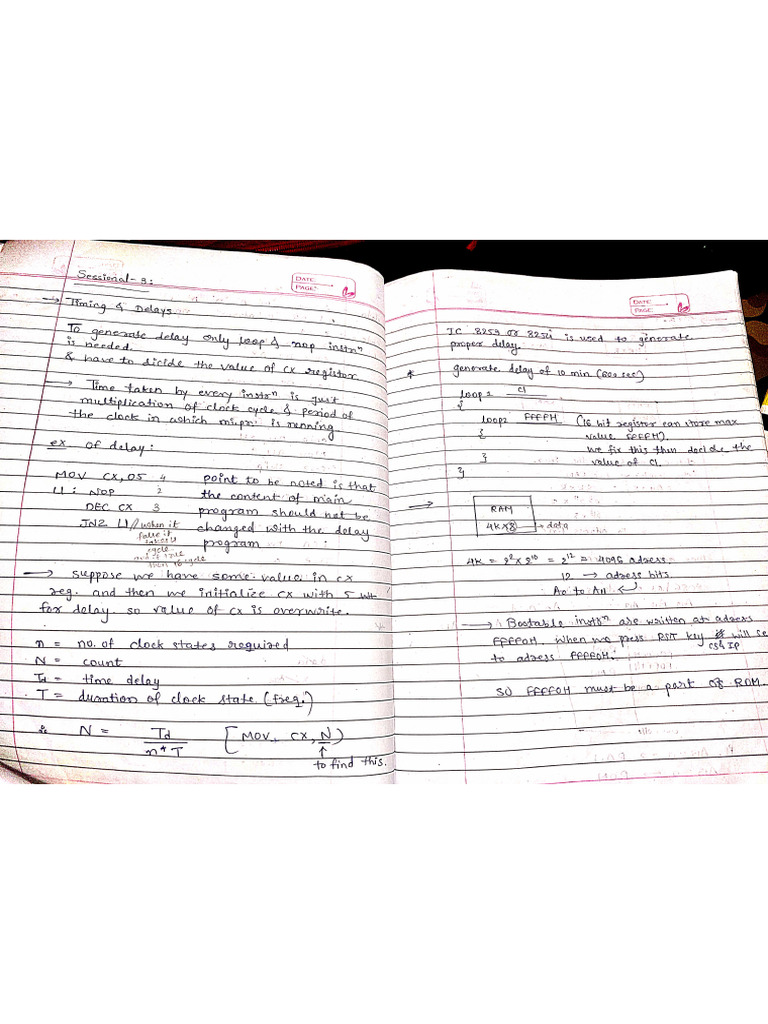 Sessional-3:
DATE:
PAGE:
→ Timing & Delays
To generate delay only loop & nop instrⁿ
is needed.
& have to dicide the value of cx registor
→ Time taken by every instrⁿ is just
multiplication of clock cycle & period of
the clock in which mi.prⁿ is running
ex. of delay:
MOV CX, 05 4
L1: NOP 2
DEC CX 3
JNZ L1 // when it
false it
cycle
then 16 cycle
point to be noted is that
the content of main
program should not be
changed with the delay
program
→ suppose we have some value in cx
reg. and then we initialize cx with 5
for delay. so value of cx is overwrite.
n = no. of clock states required
N = count
Td = time delay
T = duration of clock state (freq.)
N = Td
n * T
[MOV, CX, N)
↑
to find this.
DATE:
PAGE:
IC 8253 or 8254 is used to generate
proper delay.
* generate delay of 10 min (600 sec)
loop1 C1
{
loop2 FFFFH (16 bit register can store max
{ value FFFFH).
we fix this then decide the
} value of C1.
}
→ RAM
4K×8 → data
4K = 2² × 2¹⁰ = 2¹² = 4096 adress.
12 → adress bits
A0 to A11
→ Bootable instrⁿ are written at adress
FFFF0H. When we press RST key will se
CS & IP
to adress FFFF0H.
so FFFF0H must be a part of ROM.